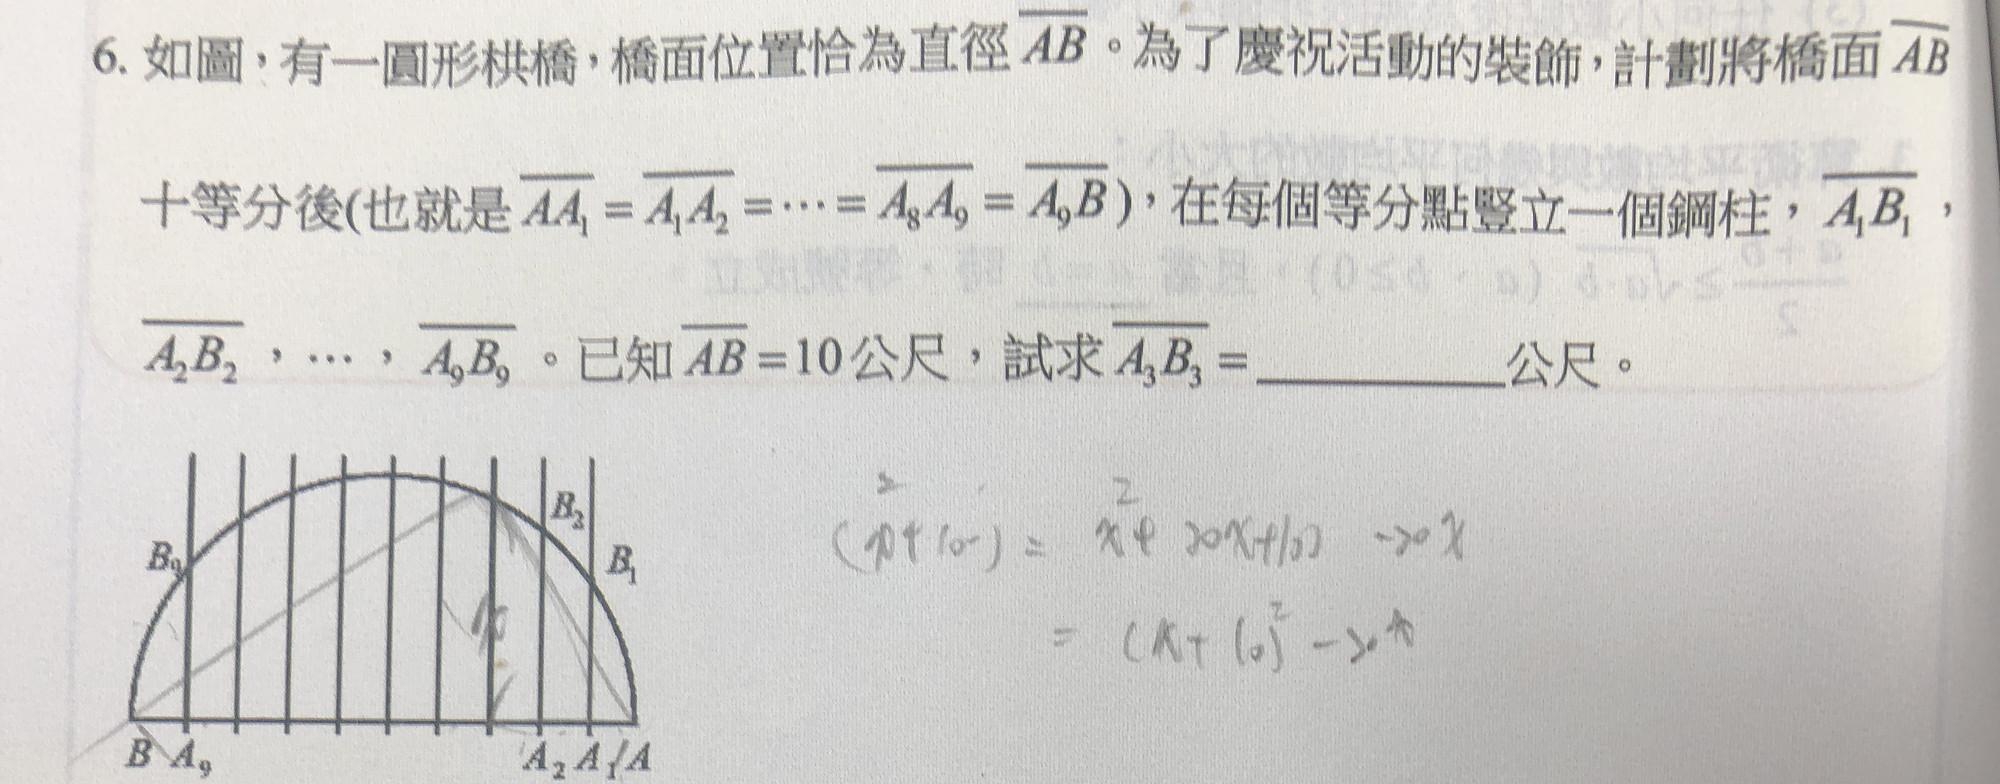 6. 如圖，有一圓形栱橋，橋面位置恰為直徑 AB。為了慶祝活動的裝飾，計劃將橋面 AB
十等分後(也就是 AA₁ = A₁A₂ = ⋯ = A₈A₉ = A₉B)，在每個等分點豎立一個鋼柱，A₁B₁，
A₂B₂，⋯，A₉B₉。已知 AB = 10 公尺，試求 A₃B₃ = ________ 公尺。
B₂
B₉
B₁
B A₉ A₂ A₁ A